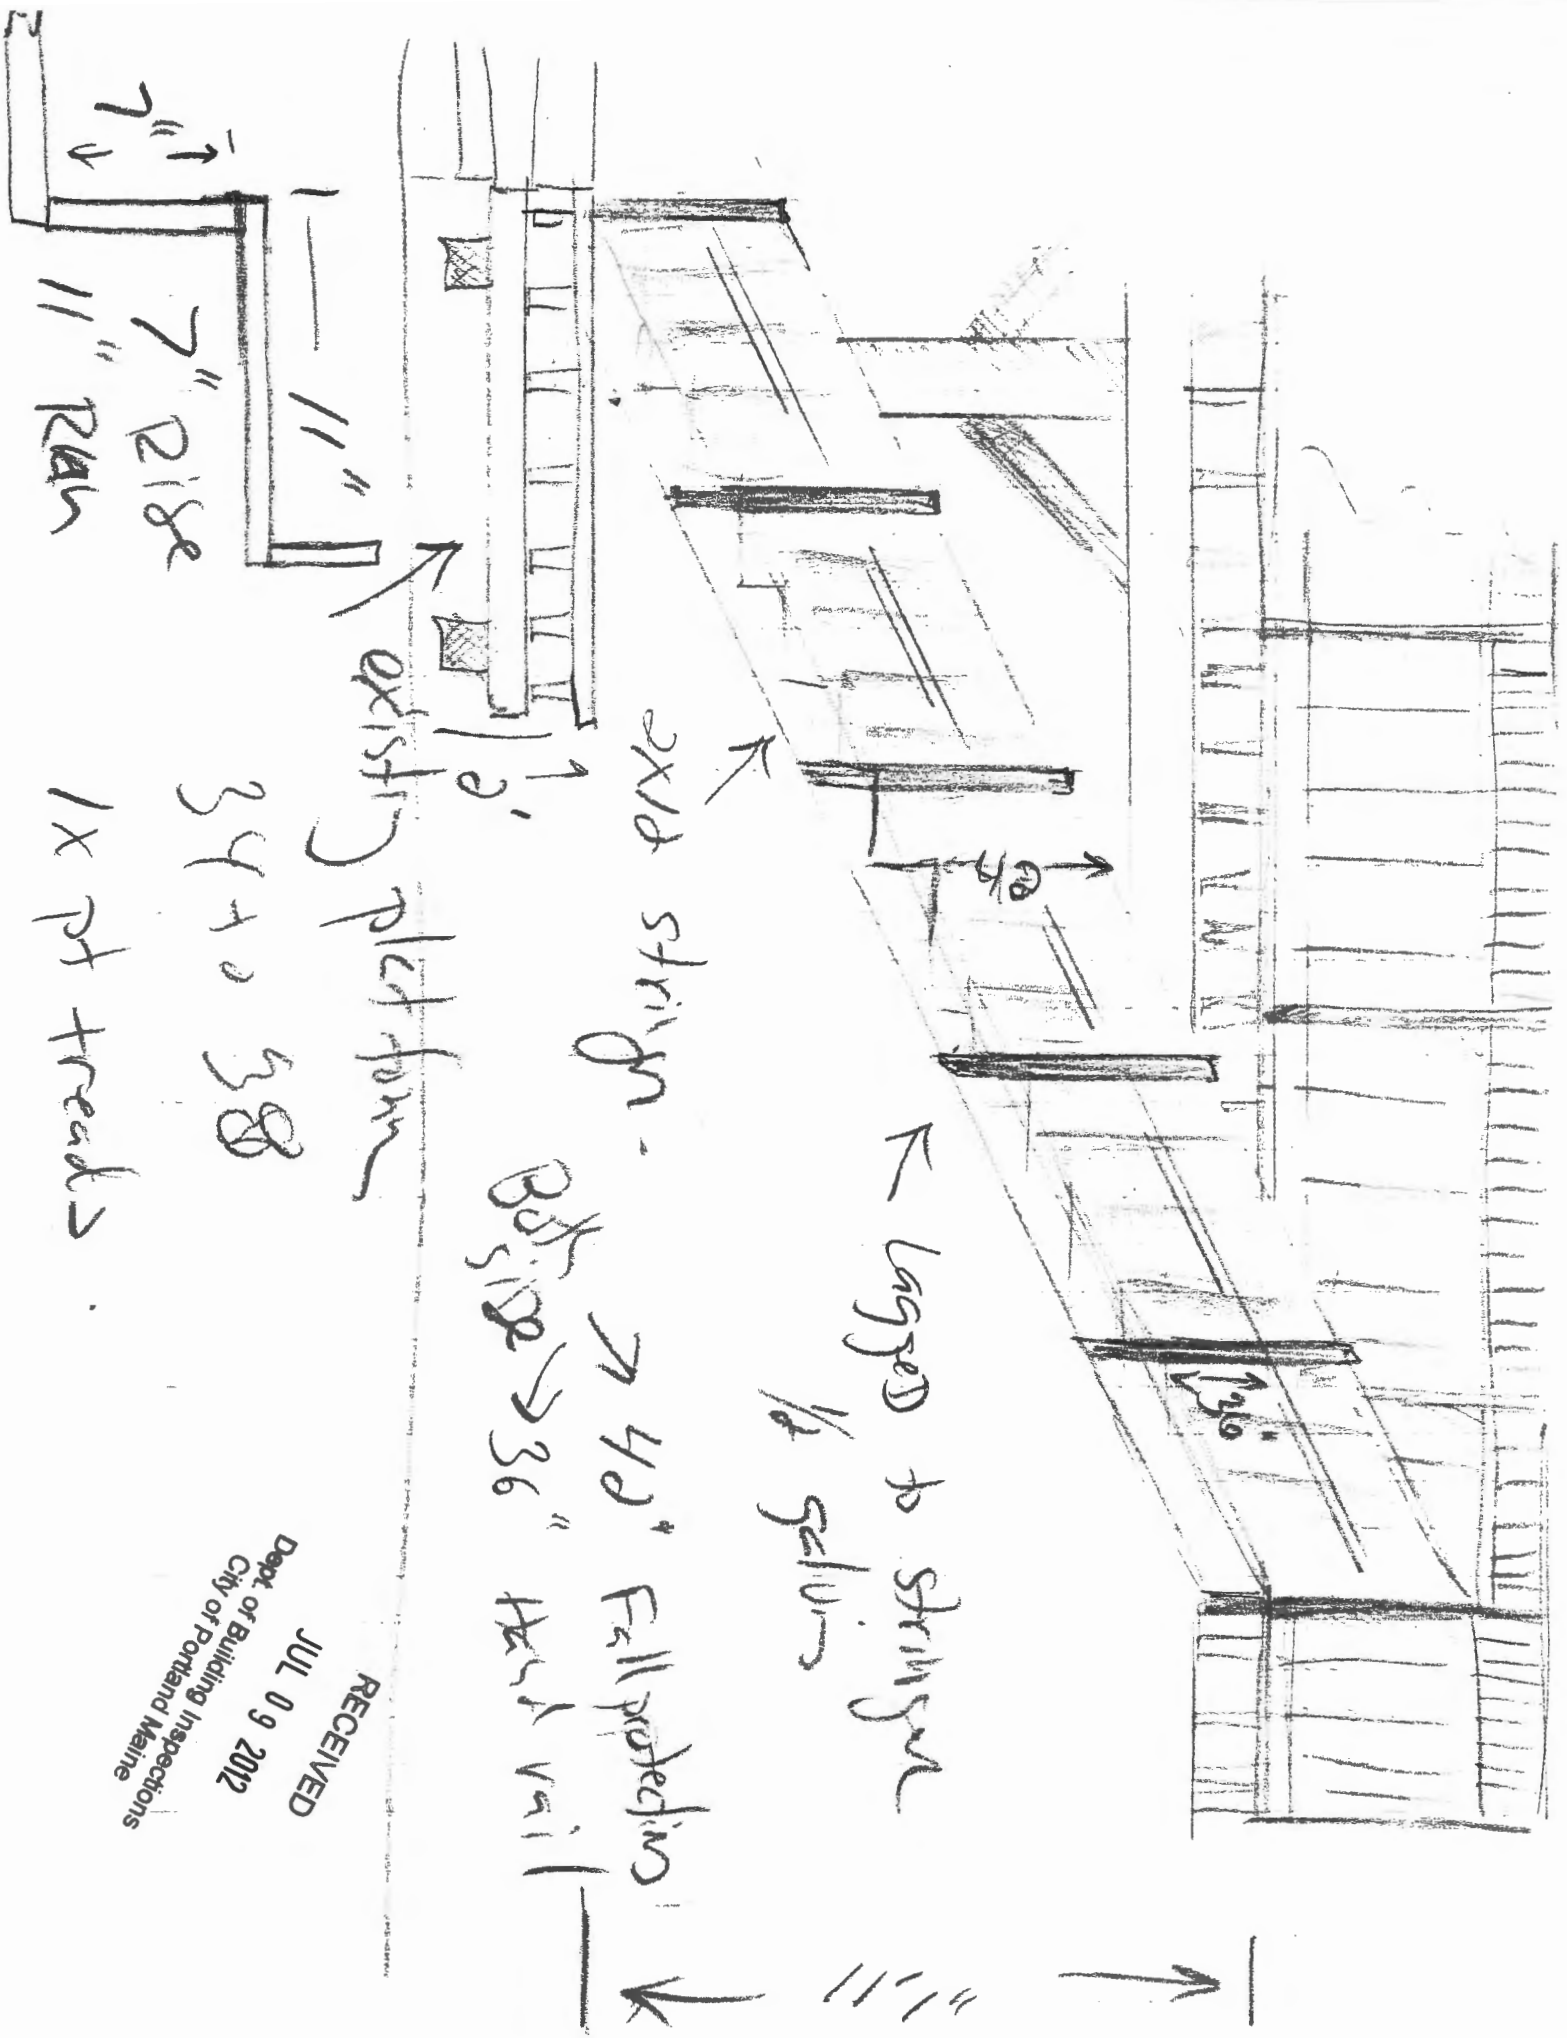 36"
6/8
lagged to stringer
1/2 galvin
2x12 stringer
42" Fall protection
Both
Side
36" Hand rail
2'
existing platform
34 to 38
1x pt treads
11"
7"
7" Rise
11" Run
RECEIVED
JUL 09 2012
Dept. of Building Inspections
City of Portland Maine